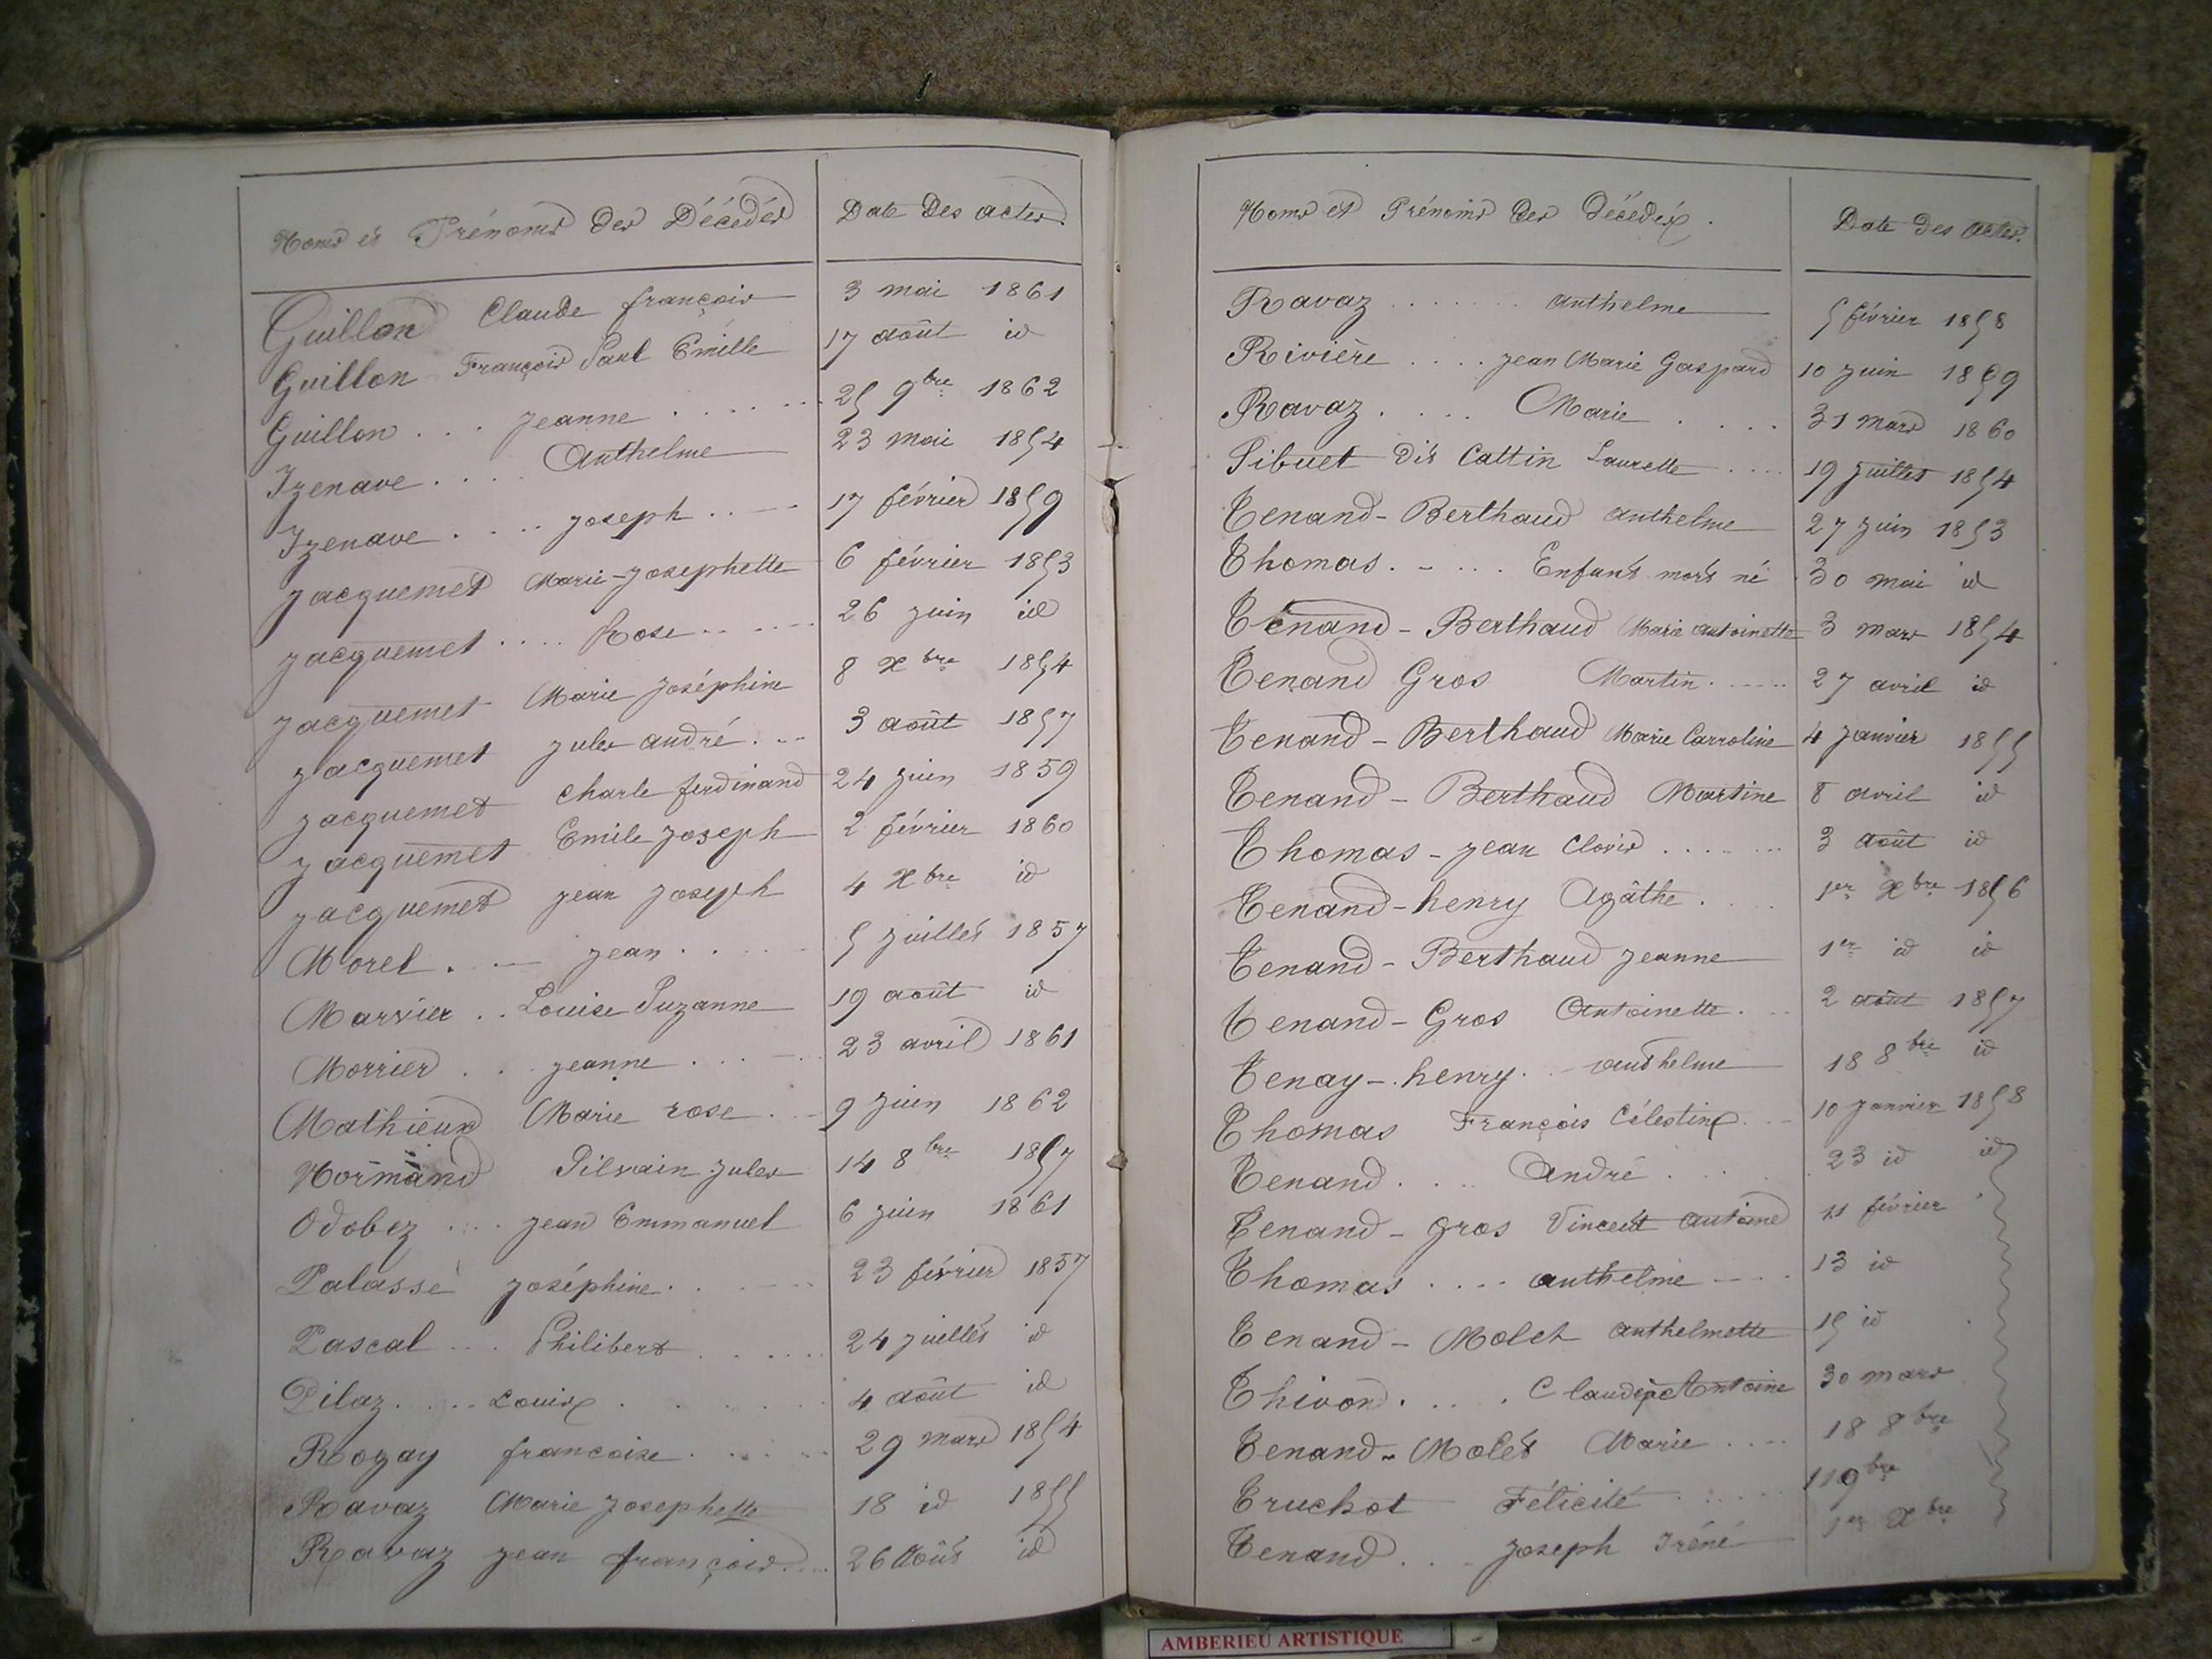 Noms et Prénoms des Décédés Date des actes
Guillon Claude françois 3 mai 1861
Guillon François Paul Emille 17 août id
Guillon . . . jeanne . . . . . . 25 9bre 1862
Izenave . . . . Anthelme 23 mai 1854
Izenave . . . . . joseph . . . . 17 février 1859
jacquemet Marie-josephette 6 février 1853
jacquemet . . . . Rose . . . . . 26 juin id
jacquemet Marie joséphine 8 Xbre 1854
jacquemet jules andré . . . 3 août 1857
jacquemet charle ferdinand 24 juin 1859
jacquemet Emile joseph 2 février 1860
jacquemet jean joseph 4 Xbre id
Morel . . . jean . . . . 5 juillet 1857
Marvier . . Louise Suzanne 19 août id
Morrier . . jeanne . . . . . 23 avril 1861
Mathieux Marie rose . . . 9 juin 1862
Normand Silvain jules 14 8bre 1857
Odobez . . . . jean Emmanuel 6 juin 1861
Palasse joséphine . . . . 23 février 1857
Pascal . . . Philibert . . . . . 24 juillet id
Pilaz . . . . Louis . . . . . . 4 août id
Rogay francoise . . . . . . 29 mars 1854
Ravaz Marie josephette 18 id 1855
Ravaz jean françois . . . . 26 Août id
Noms et Prénoms des décédés . Date des actes.
Ravaz . . . . . . . anthelme 5 février 1858
Rivière . . . . jean Marie Gaspard 10 juin 1859
Ravaz . . . . . Marie . . . . 31 mars 1860
Sibuet dit Cattin Laurette . . . . 19 juillet 1854
Tenand-Berthaud anthelme 27 juin 1853
Thomas . . . . . Enfant mort né . 30 mai id
Tenand-Berthaud Marie antoinette 3 mars 1854
Tenand Gros Martin . . . . . 27 avril id
Tenand-Berthaud Marie Carroline 4 janvier 1855
Tenand-Berthaud Martine 8 avril id
Thomas-jean Clovis . . . . . . 3 août id
Tenand-henry Agâthe . . . . 1er Xbre 1856
Tenand-Berthaud jeanne 1er id id
Tenand-Gros Antoinette . . . 2 août 1857
Tenay-henry . . anthelme 18 8bre id
Thomas François Célestin . . . 10 janvier 1858
Tenand . . . . André . . . 23 id id
Tenand-gros Vincent antoine 11 février
Thomas . . . . anthelme . . . . 13 id
Tenand-Molet anthelmette 15 id
Thivon . . . . Claude Antoine 30 mars
Tenand-Molet Marie . . . . 18 8bre
Truchot Félicité . . . . . 11 9bre
Tenand . . . joseph iréné 1er Xbre
AMBERIEU ARTISTIQUE